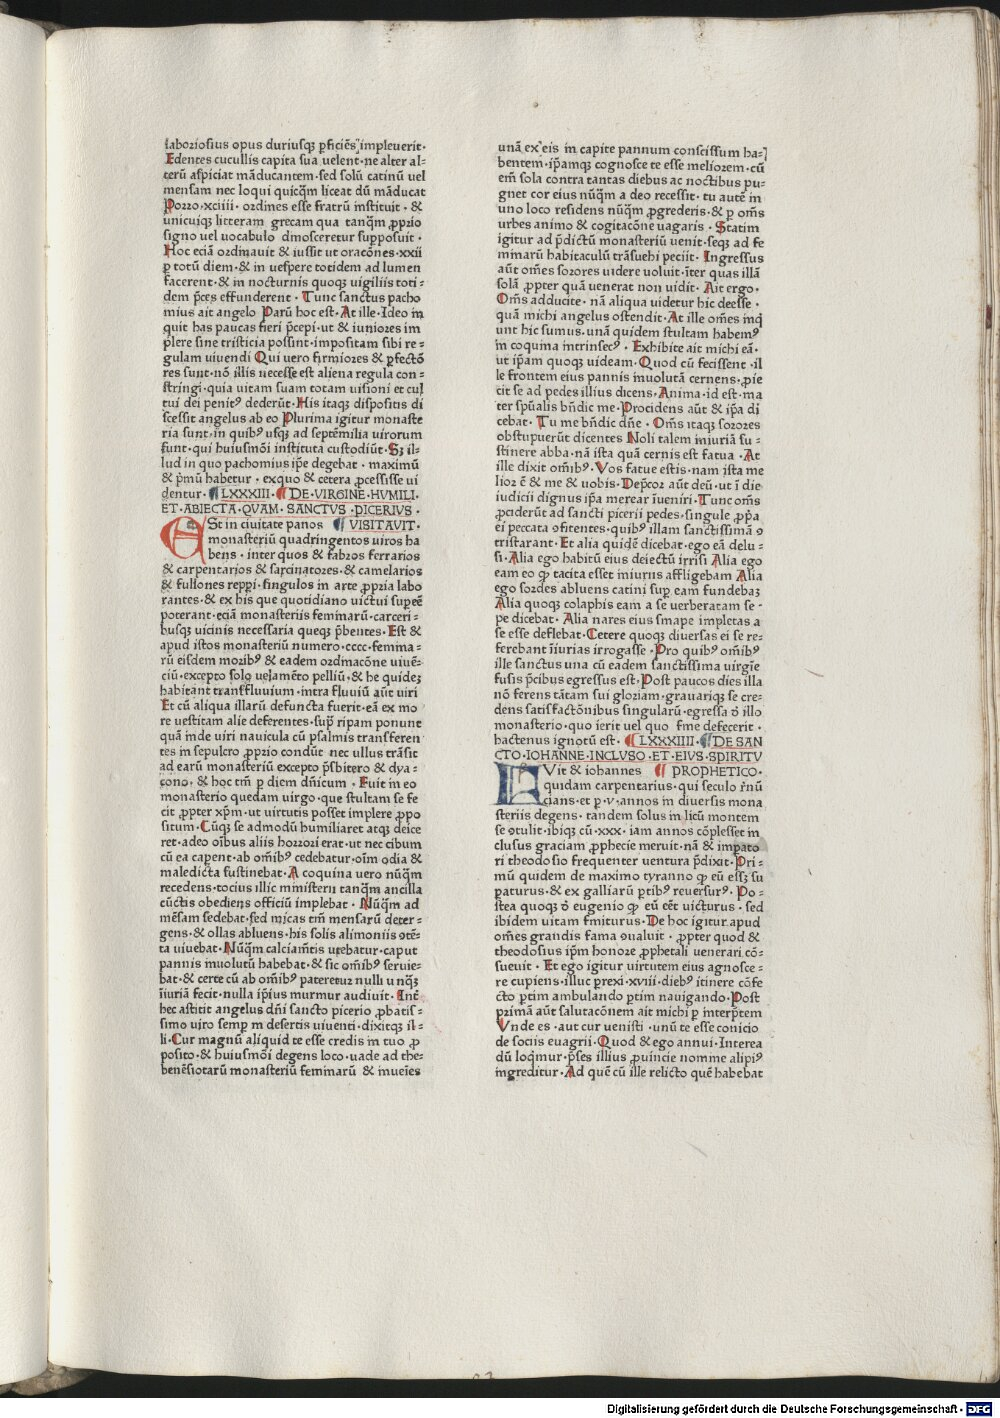 laboriosius opus duriusqȝ ꝑficiēs impleuerit·
Edentes cucullis capita sua uelent·ne alter al⸗
terū aspiciat māducantem·sed solū catinū uel
mensam nec loqui quicq̄m liceat dū māducat
Porzo·xciiii· ordines esse fratrū instituit · &
unicuiqȝ litteram grecam qua tanq̄m ꝓpzio
signo uel uocabulo dinosceretur supposuit ·
Hoc eciā ordinauit & iussit ut oracōnes·xxii
ꝑ totū diem·& in uespere totidem ad lumen
facerent·& in nocturnis quoqȝ uigiliis toti⸗
dem p̄ces effunderent · Tunc sanctus pacho
mius ait angelo Parū hoc est·At ille·Ideo in
quit has paucas fieri p̄cepi·ut & iuniores im
plere sine tristicia possint·impositam sibi re⸗
gulam uiuendi Qui uero firmiores & ꝑfectō
res sunt·nō illis necesse est aliena regula con⸗
stringi·quia uitam suam totam uisioni et cul
tui dei penitꝰ dederūt·His itaqȝ dispositis di
scessit angelus ab eo Plurima igitur monaste
ria sunt·in quibꝰ usqȝ ad septēmilia uirorum
sunt·qui huiusmōi instituta custodiūt·Sȝ il⸗
lud in quo pachomius ip̄e degebat · maximū
& p̄mū habetur · exquo & cetera ꝓcessisse ui
dentur·¶LXXXIII·¶DE·VIRGINE·HVMILI·
ET·ABIECTA·QVAM·SANCTVS·PICERIVS·
ESt in ciuitate panos ¶ VISITAVIT·
monasteriū quadringentos uiros ha
bens · inter quos & fabzos ferrarios
& carpentarios & sarcinatores·& camelarios
& fullones repp̄i·singulos in arte ꝓpzia labo
rantes·& ex his que quotidiano uictui supeē
poterant·eciā monasteriis feminarū·carceri⸗
busqȝ uicinis necessaria queqȝ p̄bentes·Est &
apud istos monasteriū numero·cccc·femina⸗
rū eisdem mozibꝰ & eadem ordinacōne uiuē⸗
ciū·excepto solo uelamēto pelliū·& he quideȝ
habitant transfluuium·intra fluuiū aūt uiri
Et cū aliqua illarū defuncta fuerit·eā ex mo
re uestitam alie deferentes·supꝰ ripam ponunt
quā inde uiri nauicula cū psalmis transferen
tes in sepulcro ꝓpzio condūt nec ullus trāsit
ad earū monasteriū excepto p̄sbitero & dya⸗
cono·& hoc tm̄ ꝑ diem dn̄icum · Fuit in eo
monasterio quedam uirgo·que stultam se fe
cit ꝓpter xp̄m·ut uirtutis posset implere ꝓpo
situm·Cūqȝ se admodū humiliaret atqȝ deice
ret·adeo oībus aliis hozrozi erat·ut nec cibum
cū ea caꝑent·ab om̄ibꝰ cedebatur·oīm odia &
maledicta sustinebat·A coquina uero nūq̄m
recedens·tocius illic ministerii tanq̄m ancilla
cūctis obediens officiū implebat · Nūq̄m ad
mēsam sedebat·sed micas tm̄ mensarū deter⸗
gens·& ollas abluens·his solis alimoniis ꝯtē⸗
ta uiuebat·Nūq̄m calciamētis utebatur·caput
pannis inuolutū habebat·& sic om̄ibꝰ seruie⸗
bat·& certe cū ab om̄ibꝰ pateretur nulli unqȝ
īiuriā fecit·nulla ip̄ius murmur audiuit·Inē
hec astitit angelus dn̄i sancto picerio ꝓbatis⸗
simo uiro semp̄ in desertis uiuenti·dixitqȝ il⸗
li·Cur magnū aliquid te esse credis in tuo ꝓ
posito·& huiusmōi degens loco·uade ad the⸗
benēsiotarū monasteriū feminarū & inueīes
unā ex eis in capite pannum conscissum ha⸗
bentem·ip̄amqȝ cognosce te esse meliorem·cū
em̄ sola contra tantas diebus ac noctibus pu⸗
gnet cor eius nūq̄m a deo recessit· tu autē in
uno loco residens nūq̄m ꝓgrederis·& ꝑ om̄s
urbes animo & cogitacōne uagaris · Statim
igitur ad p̄dictū monasteriū uenit·seqȝ ad fe
minarū habitaculū trāsuehi peciit· Ingressus
aūt om̄es sozores uidere uoluit·īter quas illā
solā ꝓpter quā uenerat non uidit· Ait ergo·
Om̄s adducite· nā aliqua uidetur hic deesse·
quā michi angelus ostendit·At ille om̄es inq̄
unt hic sumus·unā quidem stultam habemꝰ
in coquina intrinsecꝰ · Exhibite ait michi eā·
ut ip̄am quoqȝ uideam·Quod cū fecissent·il
le frontem eius pannis inuolutā cernens·ꝓie
cit se ad pedes illius dicens·Anima·id est·ma
ter sp̄ualis bn̄dic me·Procidens aūt & ip̄a di
cebat· Tu me bn̄dic dn̄e · Om̄s itaqȝ sozores
obstupuerūt dicentes Noli talem iniuriā su⸗
stinere abba·nā ista quā cernis est fatua · At
ille dixit om̄ibꝰ·Vos fatue estis·nam ista me
lior ē & me & uobis·Dep̄cor aūt deū·ut ī die
iudicii dignus ip̄a merear īueniri·Tunc om̄s
ꝓciderūt ad sancti picerii pedes·singule ꝓp̄a
ei peccata ꝯfitentes·quibꝰ illam sanctissimā ꝯ
tristarant·Et alia quidē dicebat·ego eā delu⸗
si·Alia ego habitū eius deiectū irrisi Alia ego
eam eo ꝙ tacita esset iniuriis affligebam Alia
ego sordes abluens catini supꝰ eam fundebaȝ
Alia quoqȝ colaphis eam a se uerberatam se⸗
pe dicebat· Alia nares eius sinape impletas a
se esse deflebat·Cetere quoqȝ diuersas ei se re⸗
ferebant īiurias irrogasse·Pro quibꝰ om̄ibꝰ
ille sanctus una cū eadem sanctissima uirgīe
fusis p̄cibus egressus est·Post paucos dies illa
nō ferens tātam sui gloziam·grauariqȝ se cre⸗
dens satisfactōnibus singularū·egressa ē illo
monasterio·quo ierit uel quo fine defecerit·
hactenus ignotū est·¶LXXXIIII·¶DE SAN
CTO·IOHANNE·INCLVSO·ET·EIVS·SPIRITV
FVit & iohannes ¶ PROPHETICO·
quidam carpentarius·qui seculo r̄nū
cians·et ꝑ·v·annos in diuersis mona
steriis degens· tandem solus in licū montem
se ꝯtulit·ibiqȝ cū·xxx· iam annos cōplesset in
clusus graciam ꝓphecie meruit·nā & imp̄ato
ri theodosio frequenter uentura p̄dixit·Pri⸗
mū quidem de maximo tyranno ꝙ eū essȝ su
paturus·& ex galliarū ꝑtibꝰ reuersurꝰ· Po⸗
stea quoqȝ de eugenio ꝙ eū eēt uicturus·sed
ibidem uitam finiturus·De hoc igitur apud
om̄es grandis fama ꝯualuit · ꝓpter quod &
theodosius ip̄m honore ꝓphetali uenerari cō⸗
sueuit · Et ego igitur uirtutem eius agnosce⸗
re cupiens·illuc ꝑrexi·xviii·diebꝰ itinere cōfe
cto ꝑtim ambulando ꝑtim nauigando·Post
primā aūt salutacōnem ait michi ꝑ interp̄tem
Vnde es·aut cur uenisti·unū te esse conicio
de sociis euagrii·Quod & ego annui·Interea
dū loq̄mur·p̄ses illius ꝓuincie nomine alipiꝰ
ingreditur·Ad quē cū ille relicto quē habebat
Digitalisierung gefördert durch die Deutsche Forschungsgemeinschaft · DFG